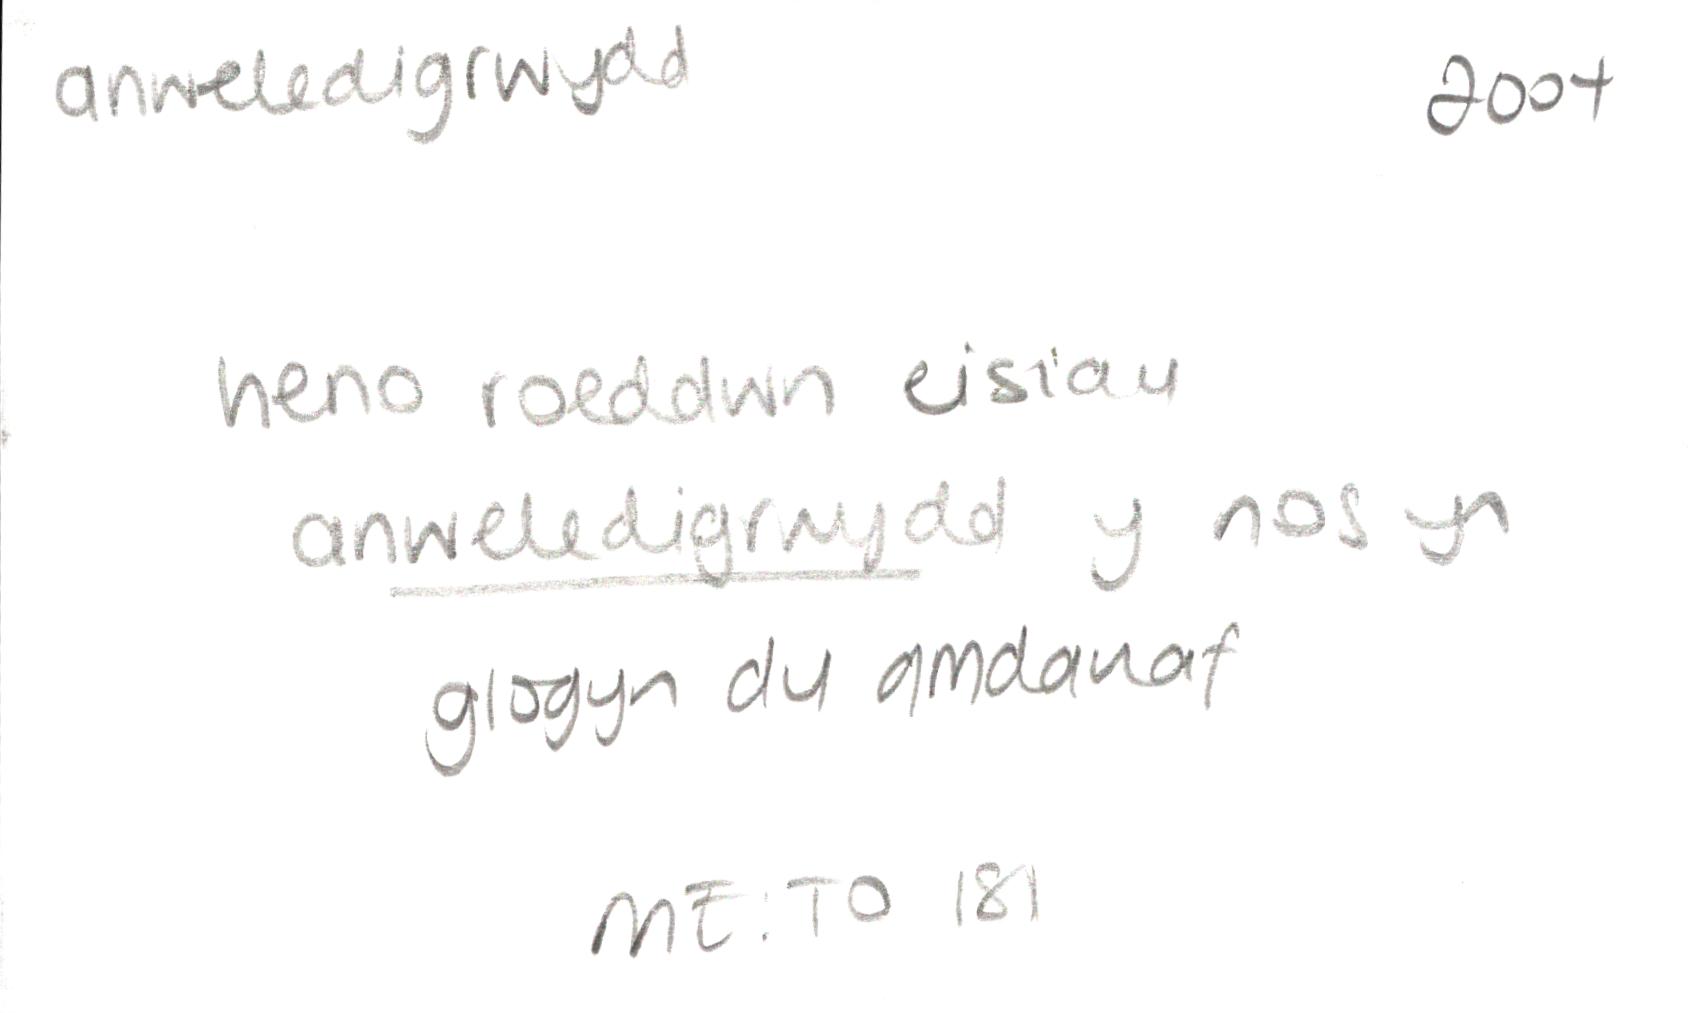 anweledigrwydd 2004
heno roeddwn eisiau
anweledigrwydd y nos yn
glogyn du amdanaf
ME:TO 181